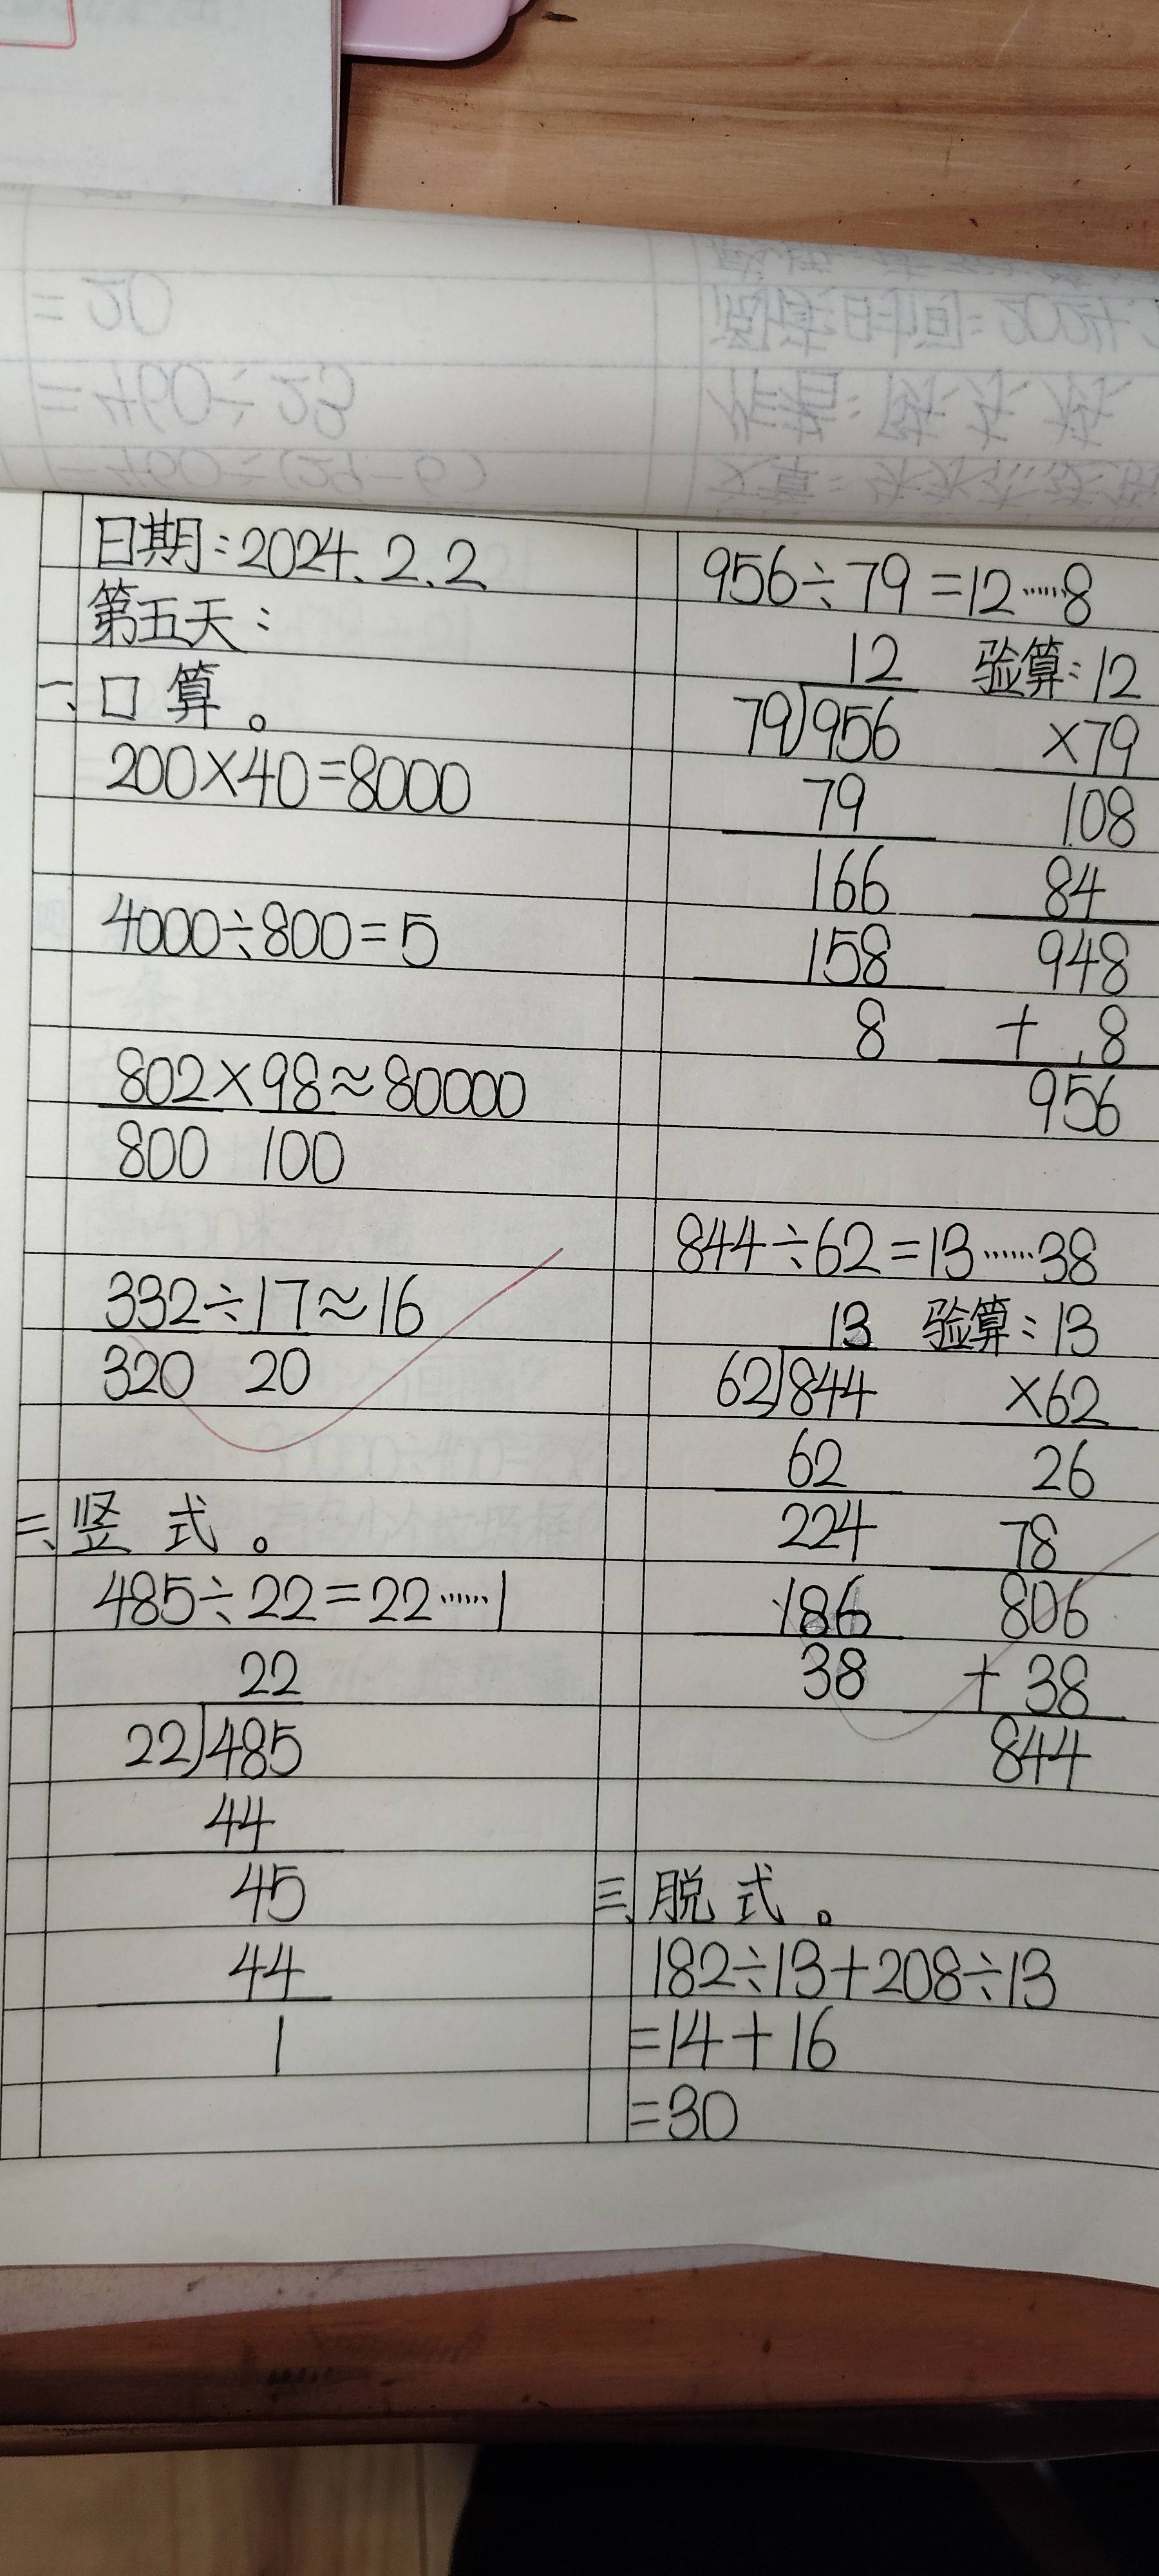 日期:2024.2.2
第五天:
一、口算。
200×40=8000
4000÷800=5
802×98≈80000
800 100
332÷17≈16
320 20
二、竖式。
485÷22=22……1
22
22)485
44
45
44
1
956÷79=12……8
12 验算:12
79)956 ×79
79 108
166 84
158 948
8 + 8
956
844÷62=13……38
13 验算:13
62)844 ×62
62 26
224 78
186 806
38 + 38
844
三、脱式。
182÷13+208÷13
=14+16
=30